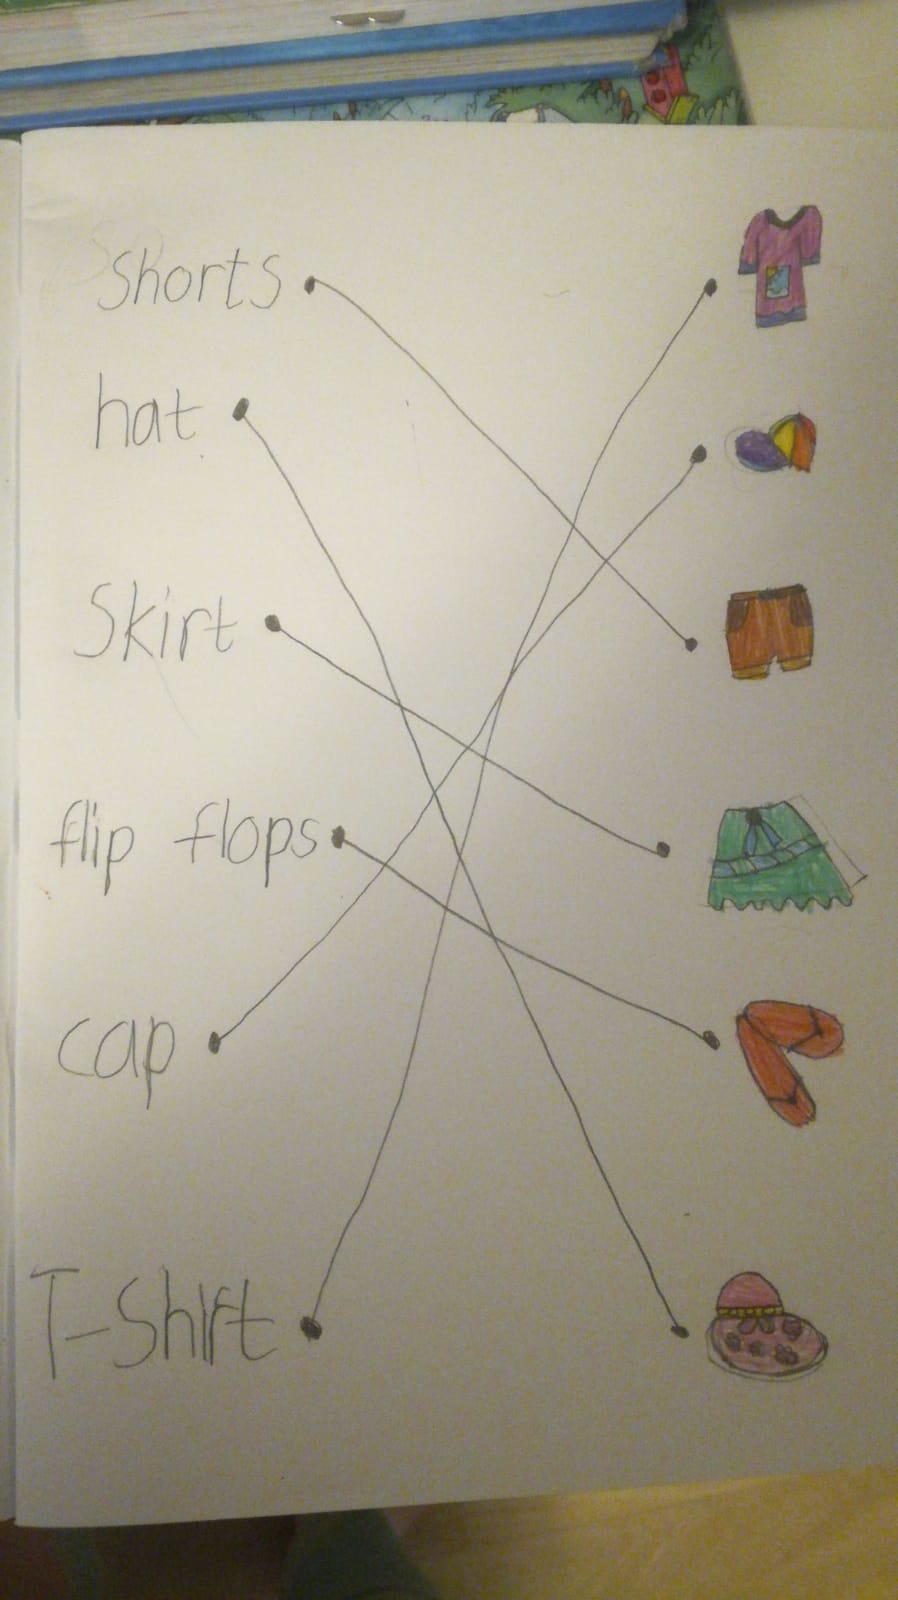 Shorts
hat
Skirt
flip flops
cap
T-Shirt